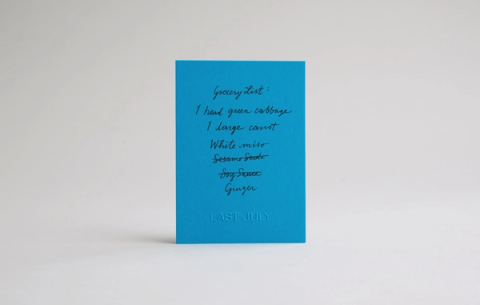 Grocery List:
1 head green cabbage
1 large carrot
White miso
Sesame Seeds
Soy Sauce
Ginger
LAST JULY